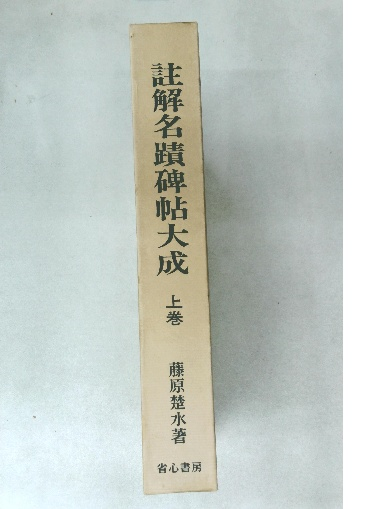 註解名蹟碑帖大成
上巻
藤原楚水著
省心書房